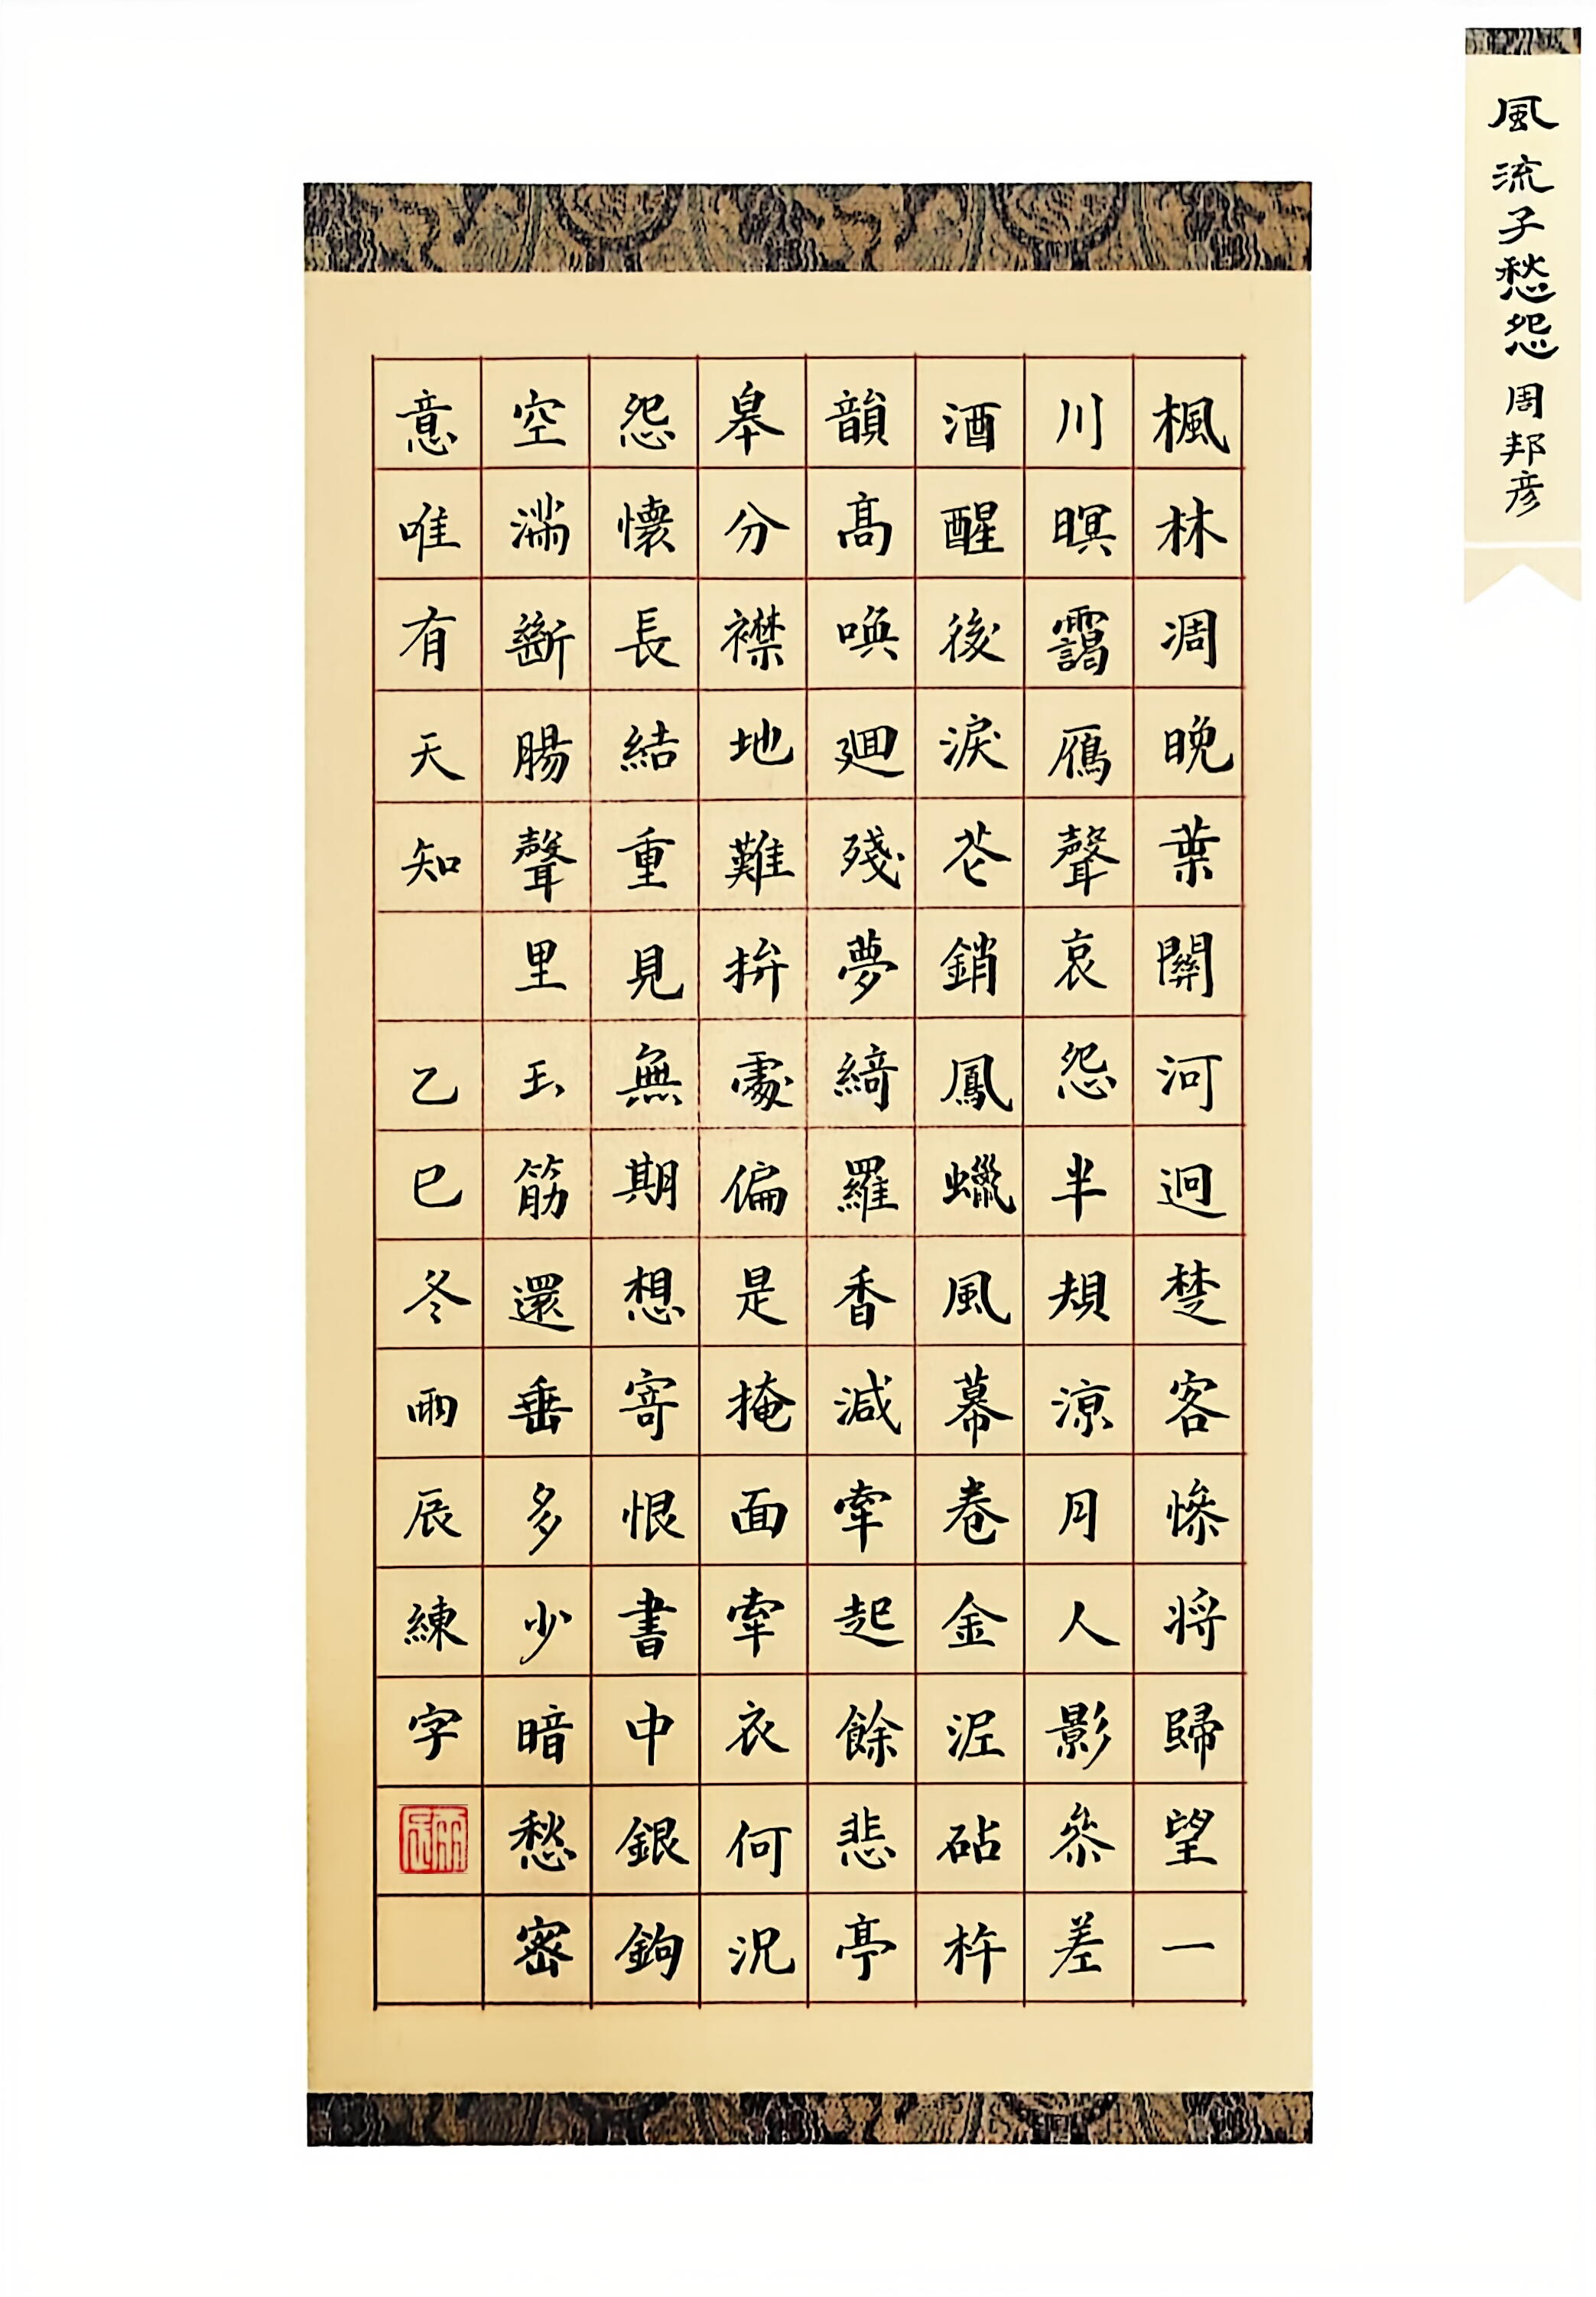 風流子愁怨 周邦彦
楓林凋晚葉關河迥楚客慘将歸望一
川暝靄鴈聲哀怨半規涼月人影參差
酒醒後淚花銷鳳蠟風幕卷金泥砧杵
韻高喚廻殘夢綺羅香減牽起餘悲亭
皋分襟地難拚處偏是掩面牽衣何況
怨懷長結重見無期想寄恨書中銀鉤
空滿斷腸聲里玉筋還垂多少暗愁密
意唯有天知 乙巳冬雨辰練字
雨辰